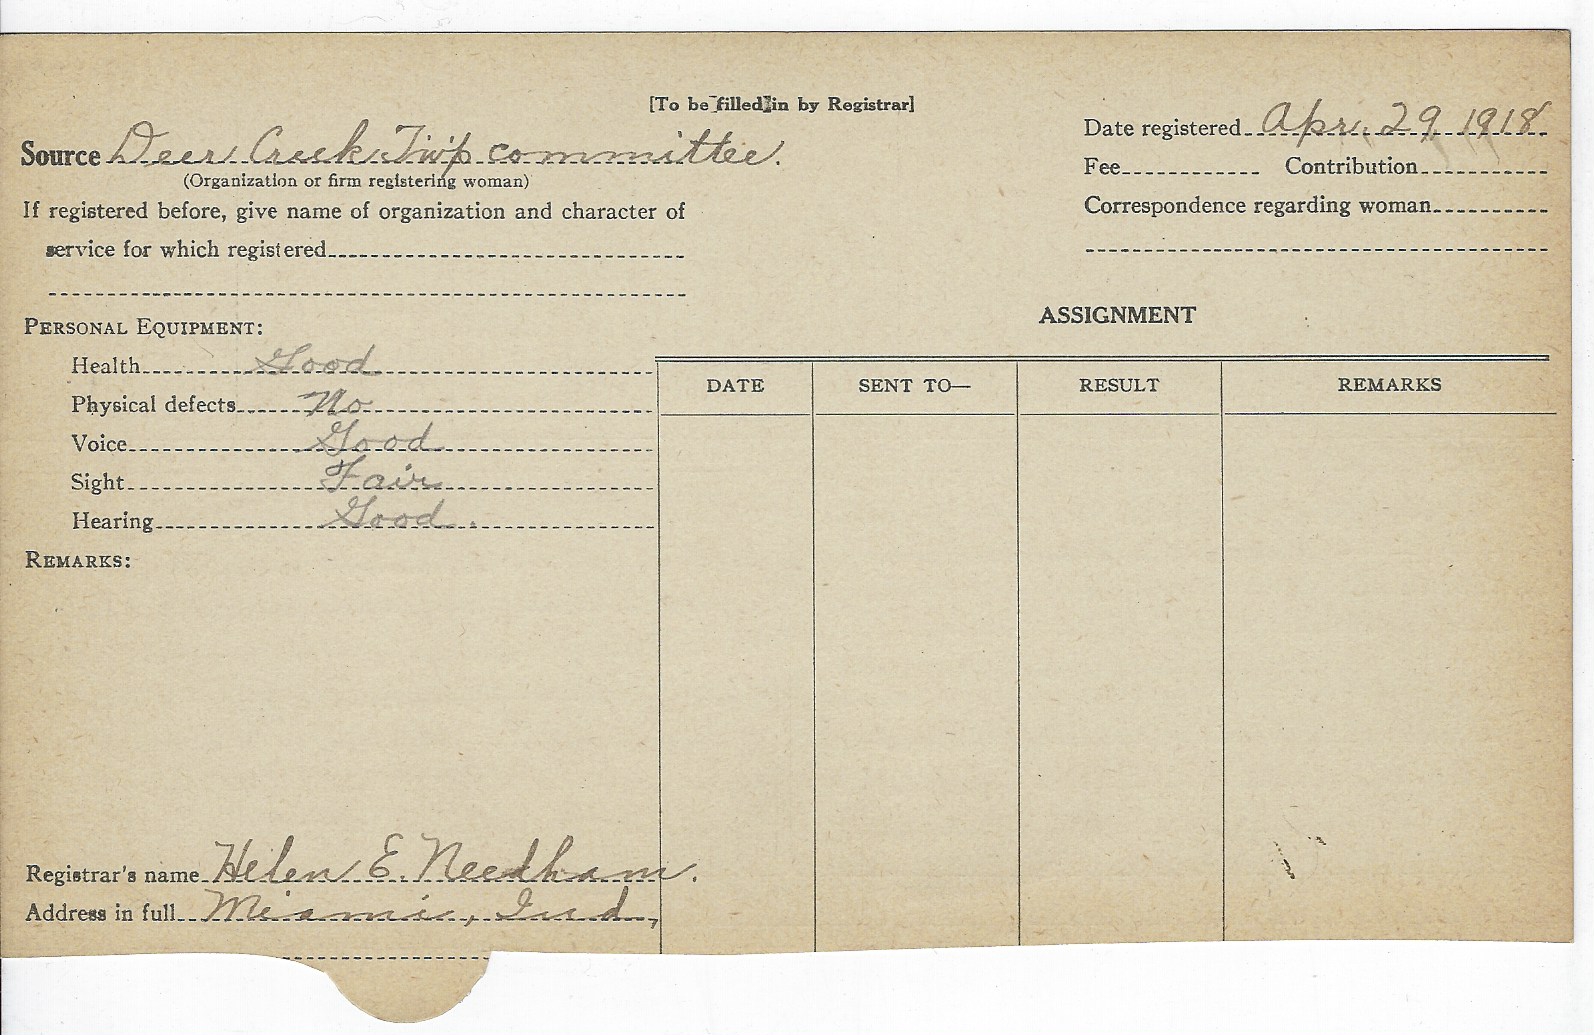 [To be filled in by Registrar]
Source Deer Creek Twp committee.
(Organization or firm registering woman)
If registered before, give name of organization and character of
service for which registered
Date registered Apr. 29, 1918
Fee Contribution
Correspondence regarding woman
PERSONAL EQUIPMENT:
Health Good
Physical defects No
Voice Good
Sight Fair
Hearing Good.
REMARKS:
ASSIGNMENT
DATE SENT TO— RESULT REMARKS
Registrar's name Helen E. Needham.
Address in full Miami, Ind,